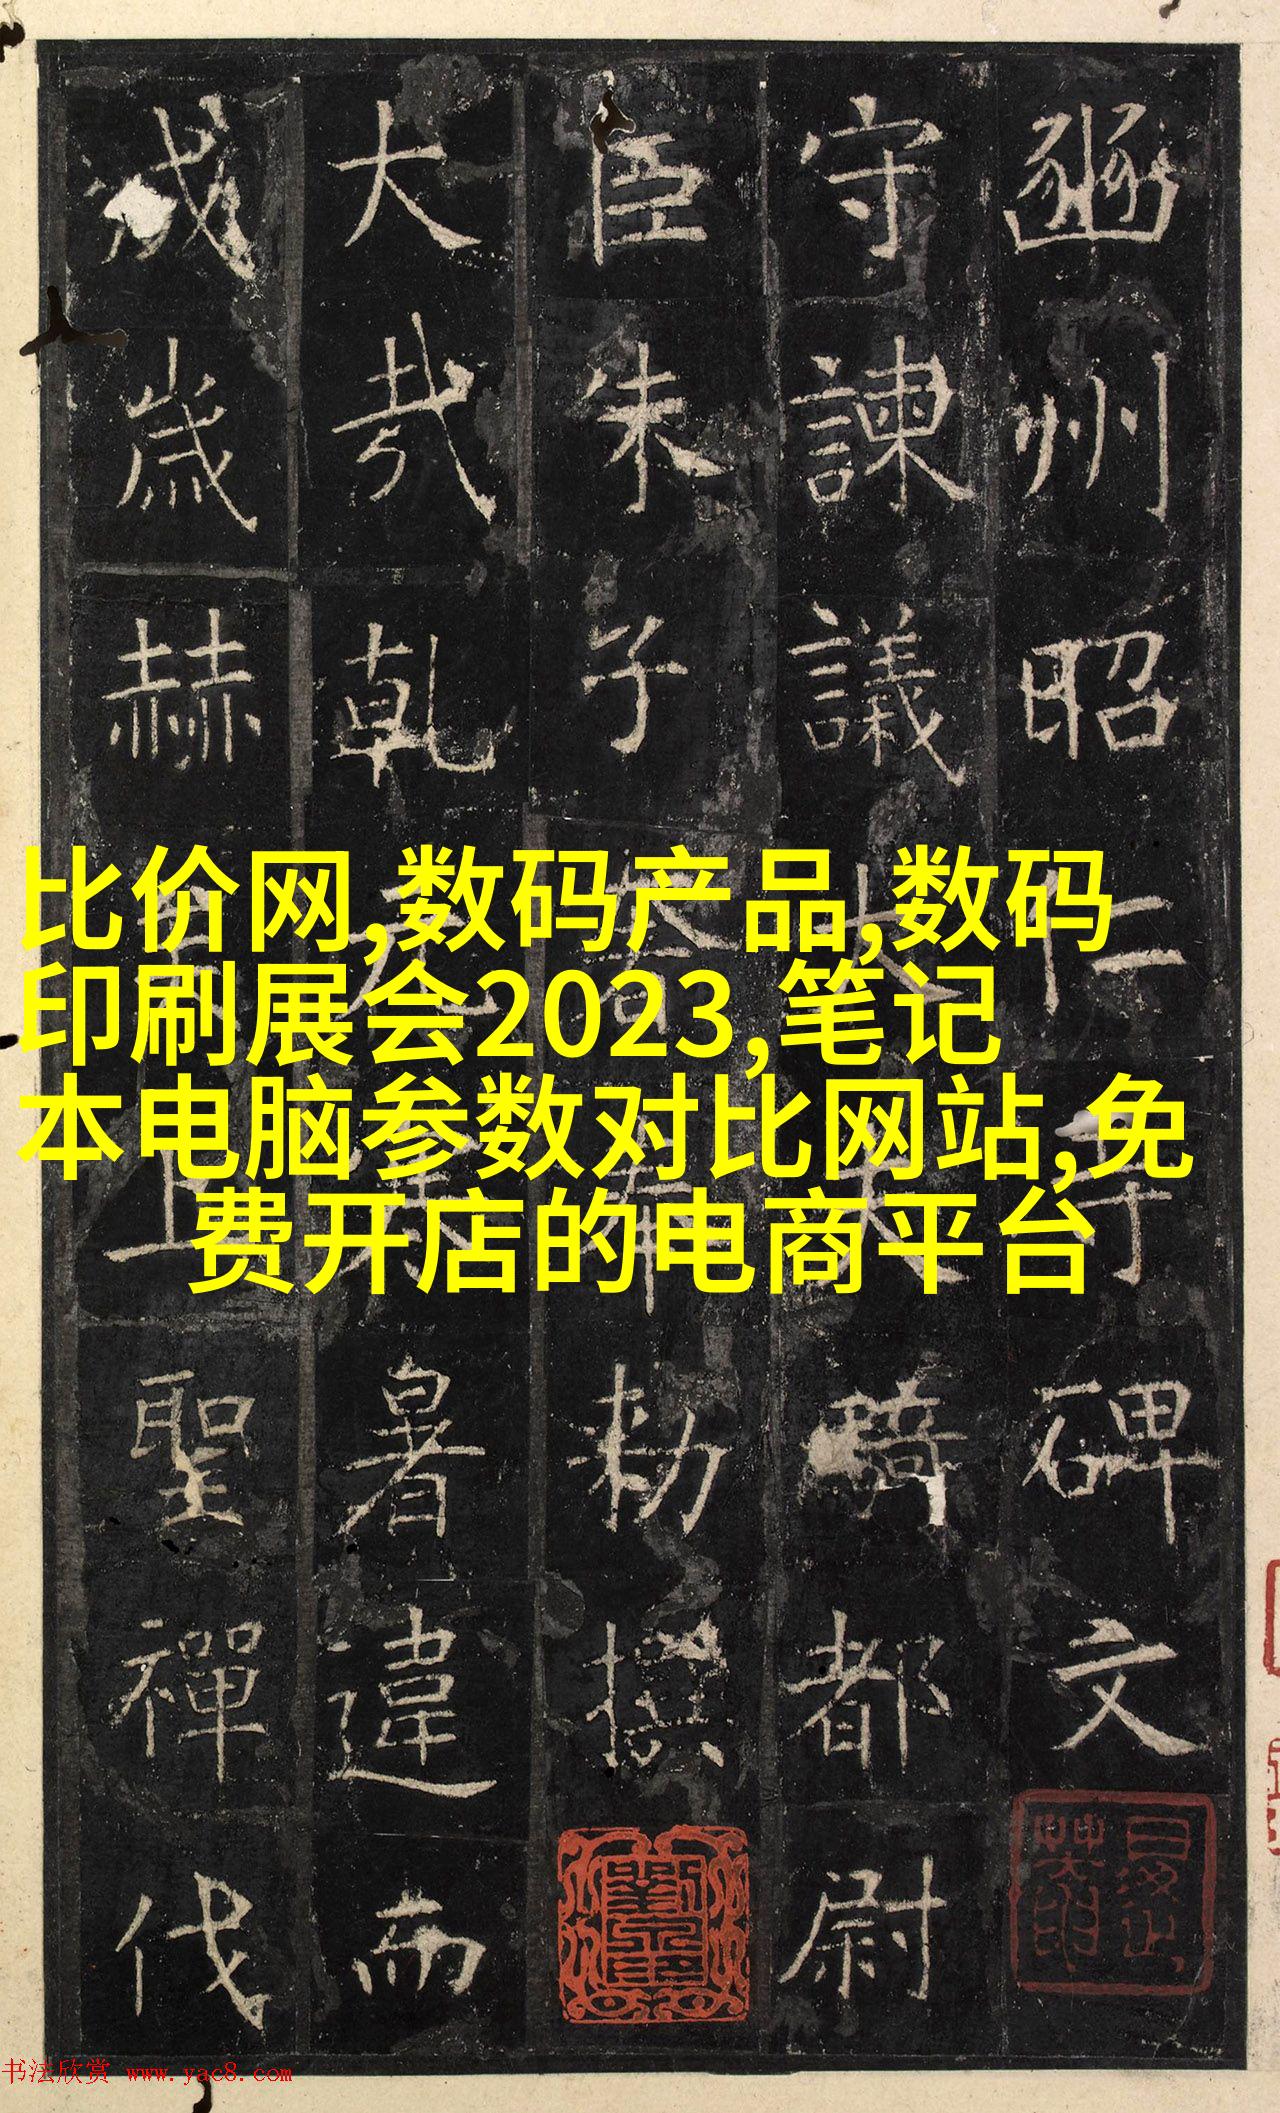 豳州昭仁寺碑文
守諫議大夫騎都尉
臣朱子奢奉勅撰
大哉乾元寒暑違而
成歲赫矣上聖禪代
比价网,数码产品,数码
印刷展会2023,笔记
本电脑参数对比网站,免
费开店的电商平台
书法欣赏 www.yac8.com